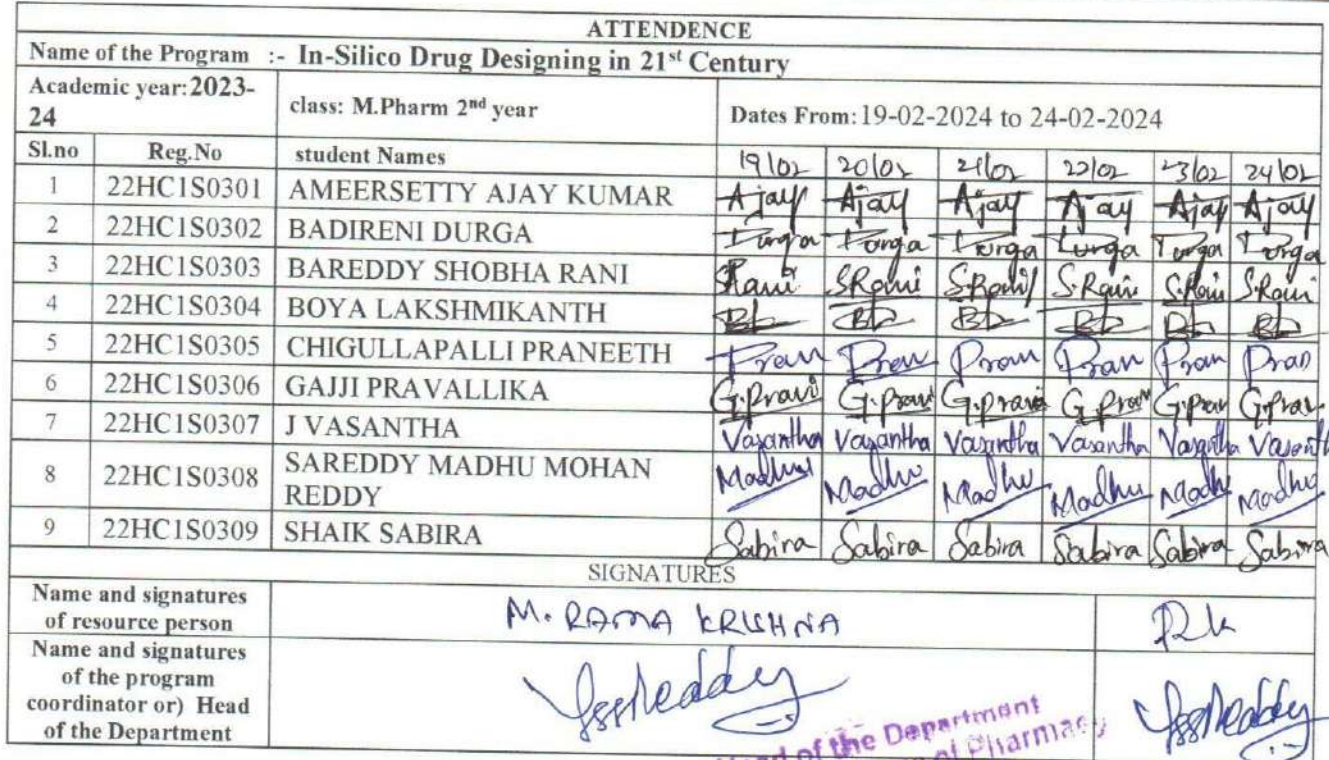 ATTENDENCE
Name of the Program :- In-Silico Drug Designing in 21st Century
Academic year:2023-24 class: M.Pharm 2nd year Dates From: 19-02-2024 to 24-02-2024
Sl.no Reg.No student Names 19/02 20/02 21/02 22/02 23/02 24/02
1 22HC1S0301 AMEERSETTY AJAY KUMAR Ajay Ajay Ajay Ajay Ajay Ajay
2 22HC1S0302 BADIRENI DURGA Durga Durga Durga Durga Durga Durga
3 22HC1S0303 BAREDDY SHOBHA RANI SRani S.Rani S.Rani S.Rani S.Rani S.Rani
4 22HC1S0304 BOYA LAKSHMIKANTH
5 22HC1S0305 CHIGULLAPALLI PRANEETH Pran Pran Pran Pran Pran Pran
6 22HC1S0306 GAJJI PRAVALLIKA G.Pravi G.Pravi G.Pravi G.Prav G.Prav G.Prav
7 22HC1S0307 J VASANTHA Vasantha Vasantha Vasantha Vasantha Vasantha Vasanth
8 22HC1S0308 SAREDDY MADHU MOHAN REDDY Madhu Madhu Madhu Madhu Madhu Madhu
9 22HC1S0309 SHAIK SABIRA Sabira Sabira Sabira Sabira Sabira Sabira
SIGNATURES
Name and signatures of resource person M. RAMA KRISHNA Rk
Name and signatures of the program coordinator or) Head of the Department
of the Department
of Pharmacy